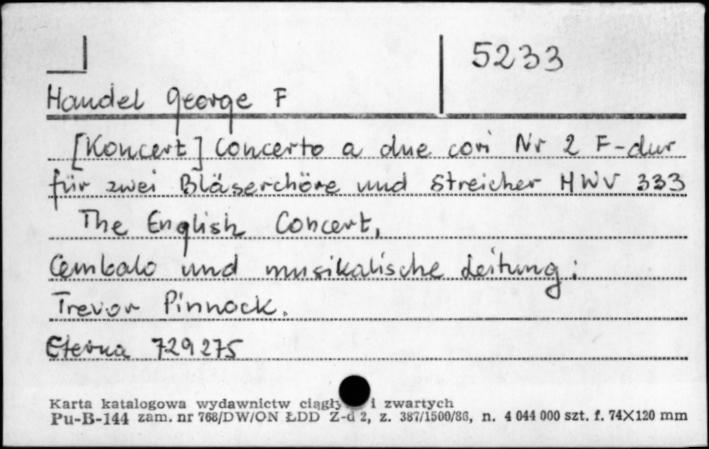 5233
Handel George F
[Koncert] Concerto a due cori Nr 2 F-dur
für zwei Bläserchöre und Streicher HWV 333
The English Concert,
Cembalo und musikalische Leitung:
Trevor Pinnock.
Eterna 729275
Karta katalogowa wydawnictw ciągły i zwartych
Pu-B-144 zam. nr 768/DW/ON ŁDD Z-d 2, z. 387/1500/86, n. 4 044 000 szt. f. 74X120 mm